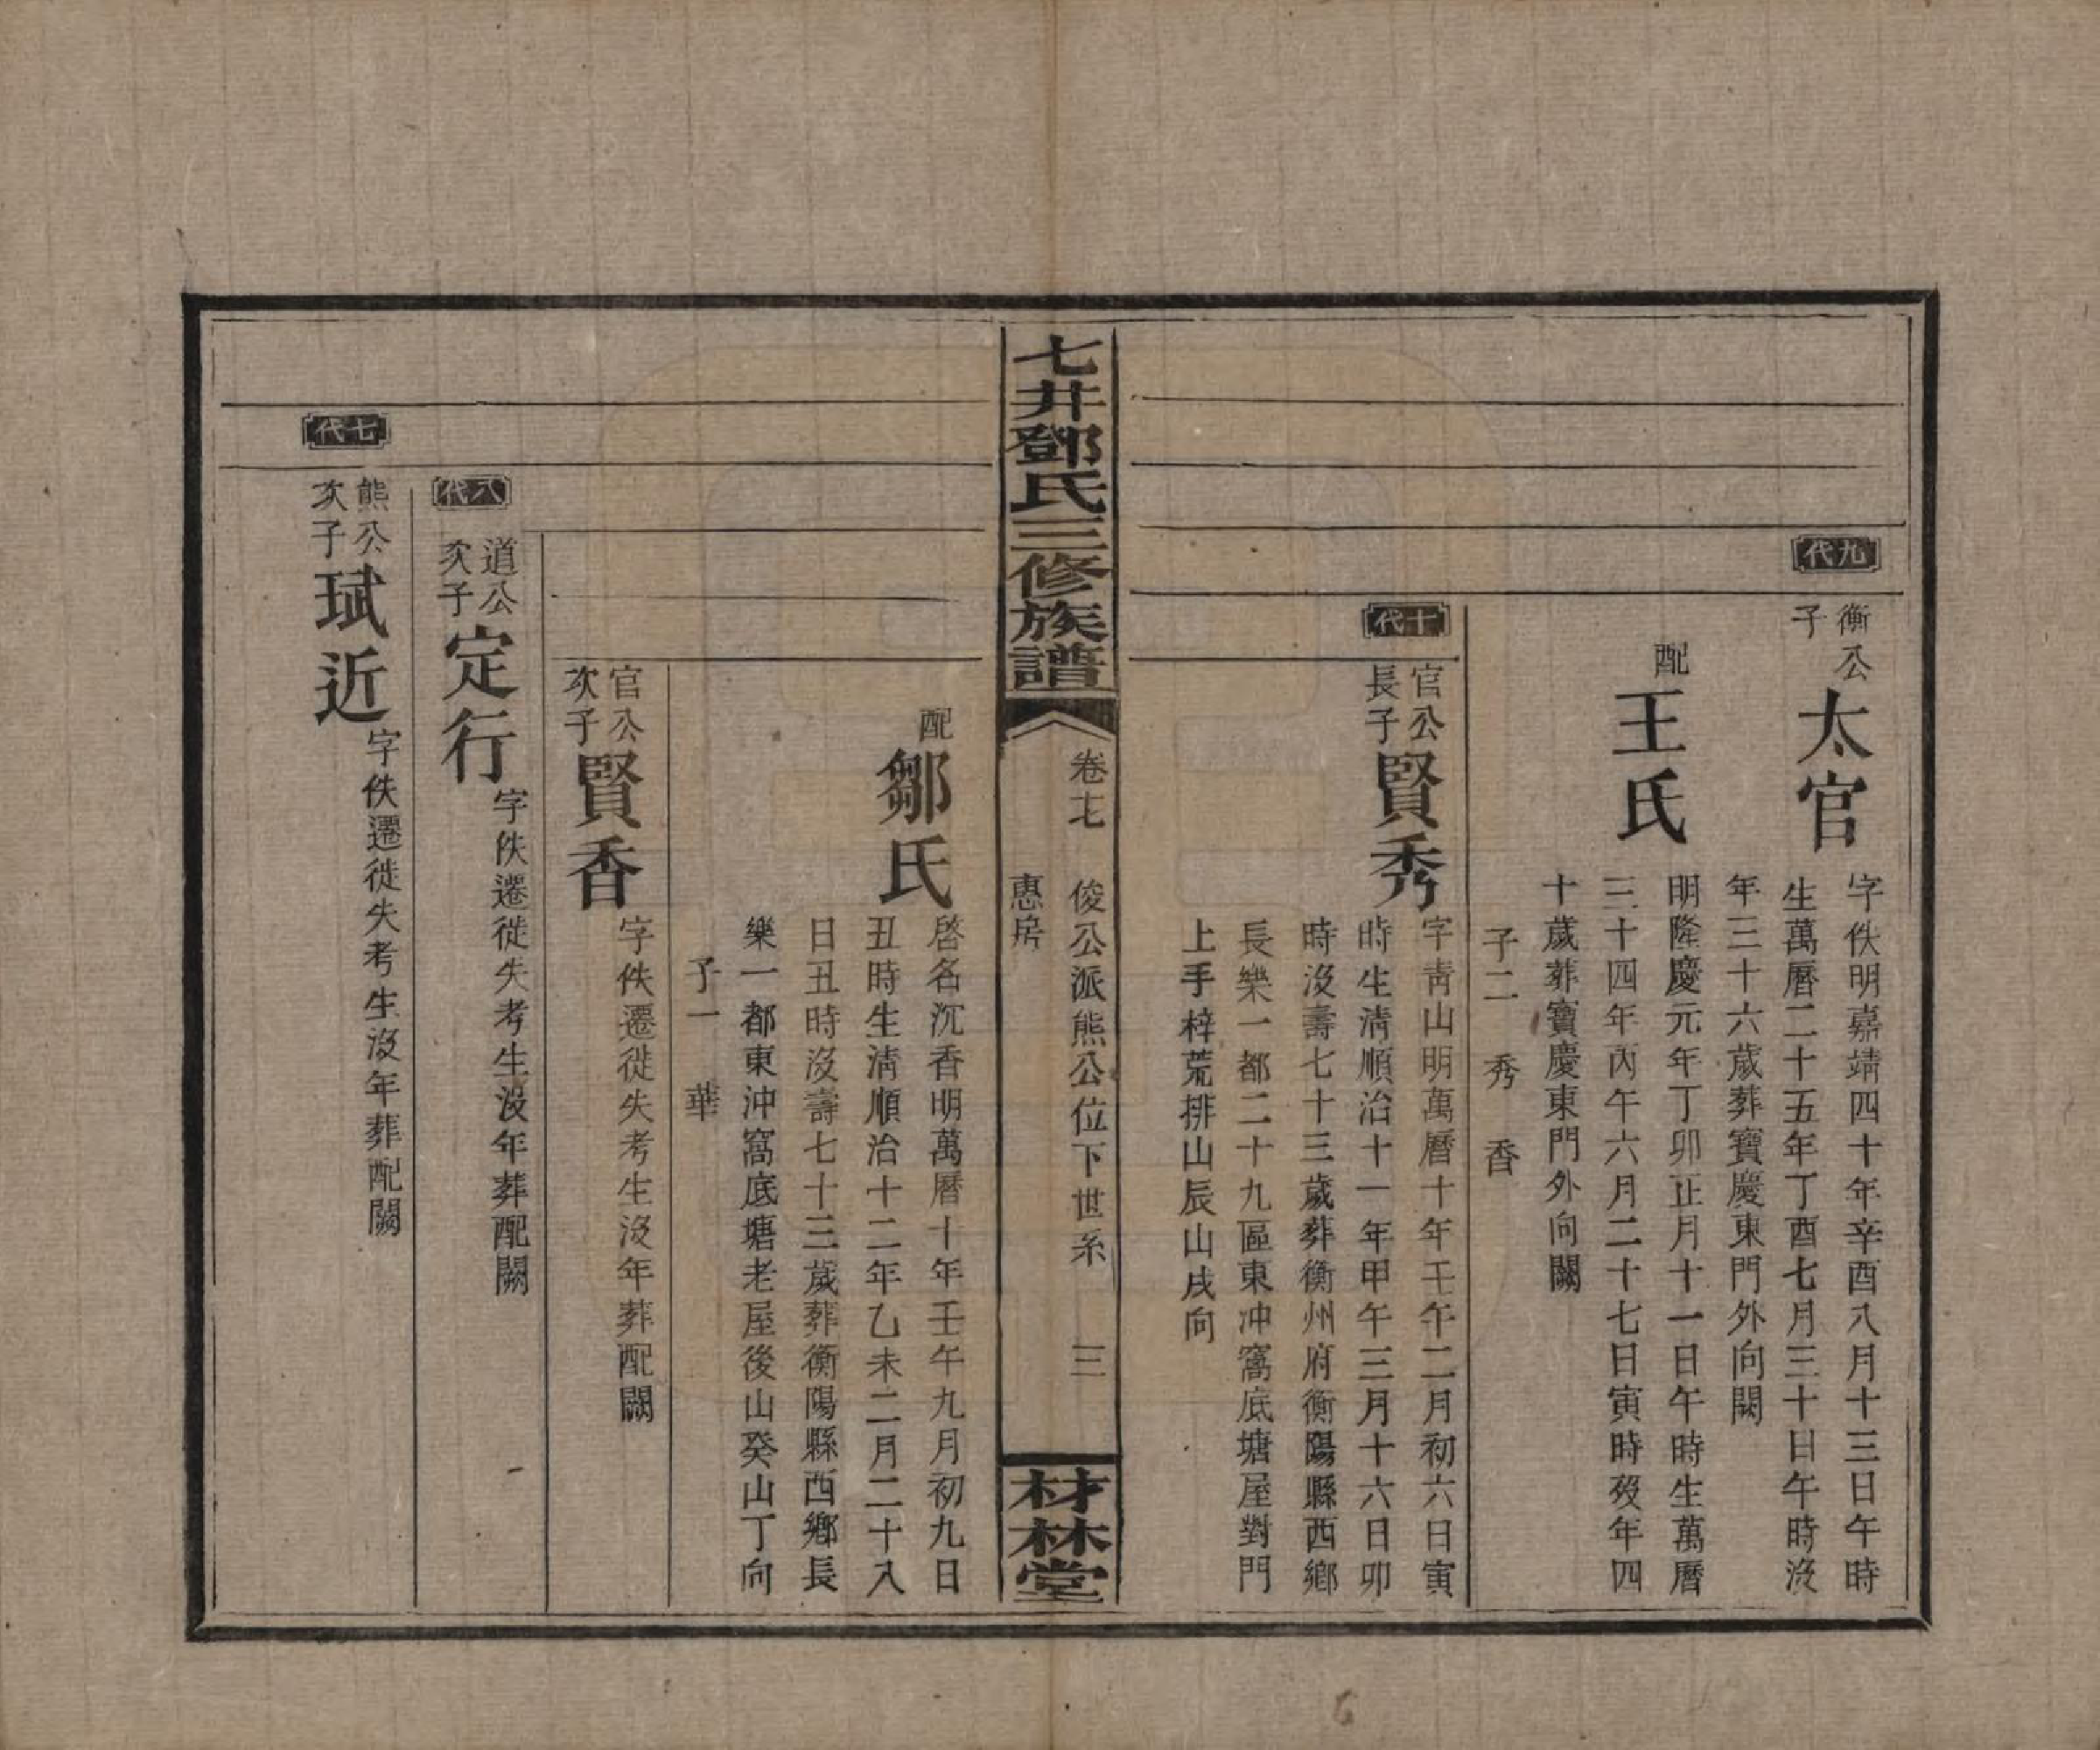 九代
衡公
子
太官
字佚明嘉靖四十年辛酉八月十三日午時
生萬曆二十五年丁酉七月三十日午時沒
年三十六歲葬寶慶東門外向闕
配
王氏
明隆慶元年丁卯正月十一日午時生萬曆
三十四年丙午六月二十七日寅時歿年四
十歲葬寶慶東門外向闕
子二 秀 香
十代
官公
長子
賢秀
字靑山明萬曆十年壬午二月初六日寅
時生淸順治十一年甲午三月十六日卯
時沒壽七十三歲葬衡州府衡陽縣西鄉
長樂一都二十九區東冲窩底塘屋對門
上手梓荒排山辰山戌向
七井鄧氏三修族譜
卷七
俊公派熊公位下世系 三
惠房
材林堂
配
鄒氏
啓名沉香明萬曆十年壬午九月初九日
丑時生淸順治十二年乙未二月二十八
日丑時沒壽七十三歲葬衡陽縣西鄉長
樂一都東沖窩底塘老屋後山癸山丁向
子一 華
官公
次子
賢香
字佚遷徙失考生沒年葬配闕
八代
道公
次子
定行
字佚遷徙失考生沒年葬配闕
七代
熊公
次子
珷近
字佚遷徙失考生沒年葬配闕